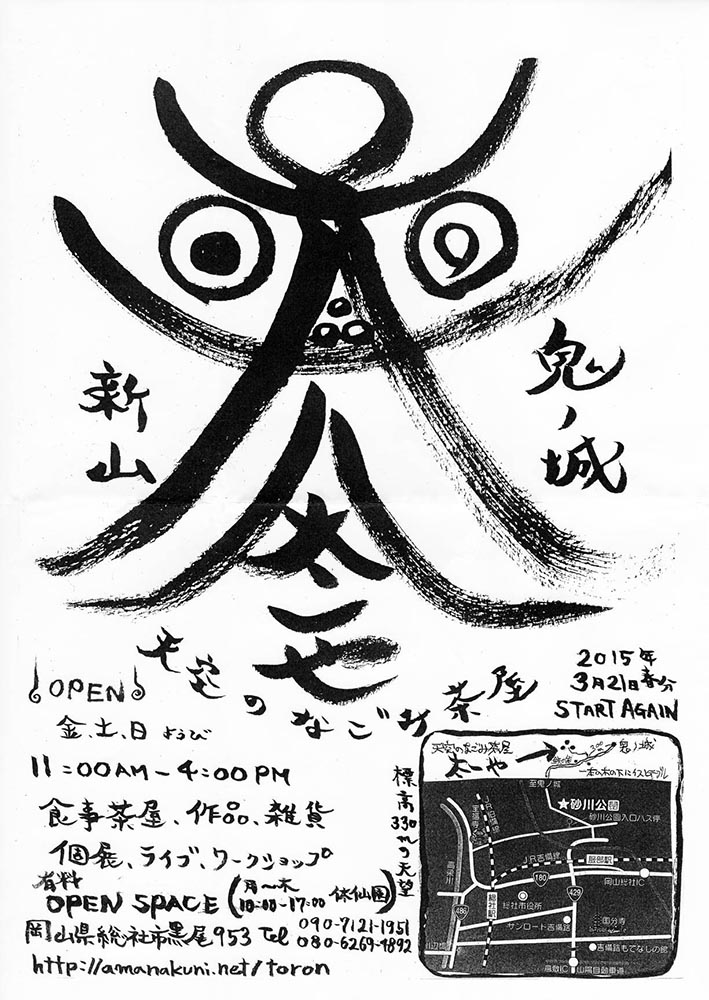 鬼ノ城
新山
太一や
天空のなごみ茶屋
2015年
3月21日春分
START AGAIN
OPEN
金、土、日ようび
11:00AM-4:00PM
食事茶屋、作品、雑貨
個展、ライブ、ワークショップ
有料
OPEN SPACE (月〜木 10:00-17:00 休仙園)
岡山県総社市黒尾953 Tel 090-7121-1951
080-6269-4892
http://amanakuni.net/toron
標高330mの天望
天空のなごみ茶屋
太一や
鬼ノ城
至鬼ノ城
★砂川公園
砂川公園入口バス停
JR吉備線
服部駅
岡山総社IC
180
429
486
高梁川
総社駅
総社市役所
サンロード吉備路
国分寺
吉備路もてなしの館
倉敷IC
山陽自動車道